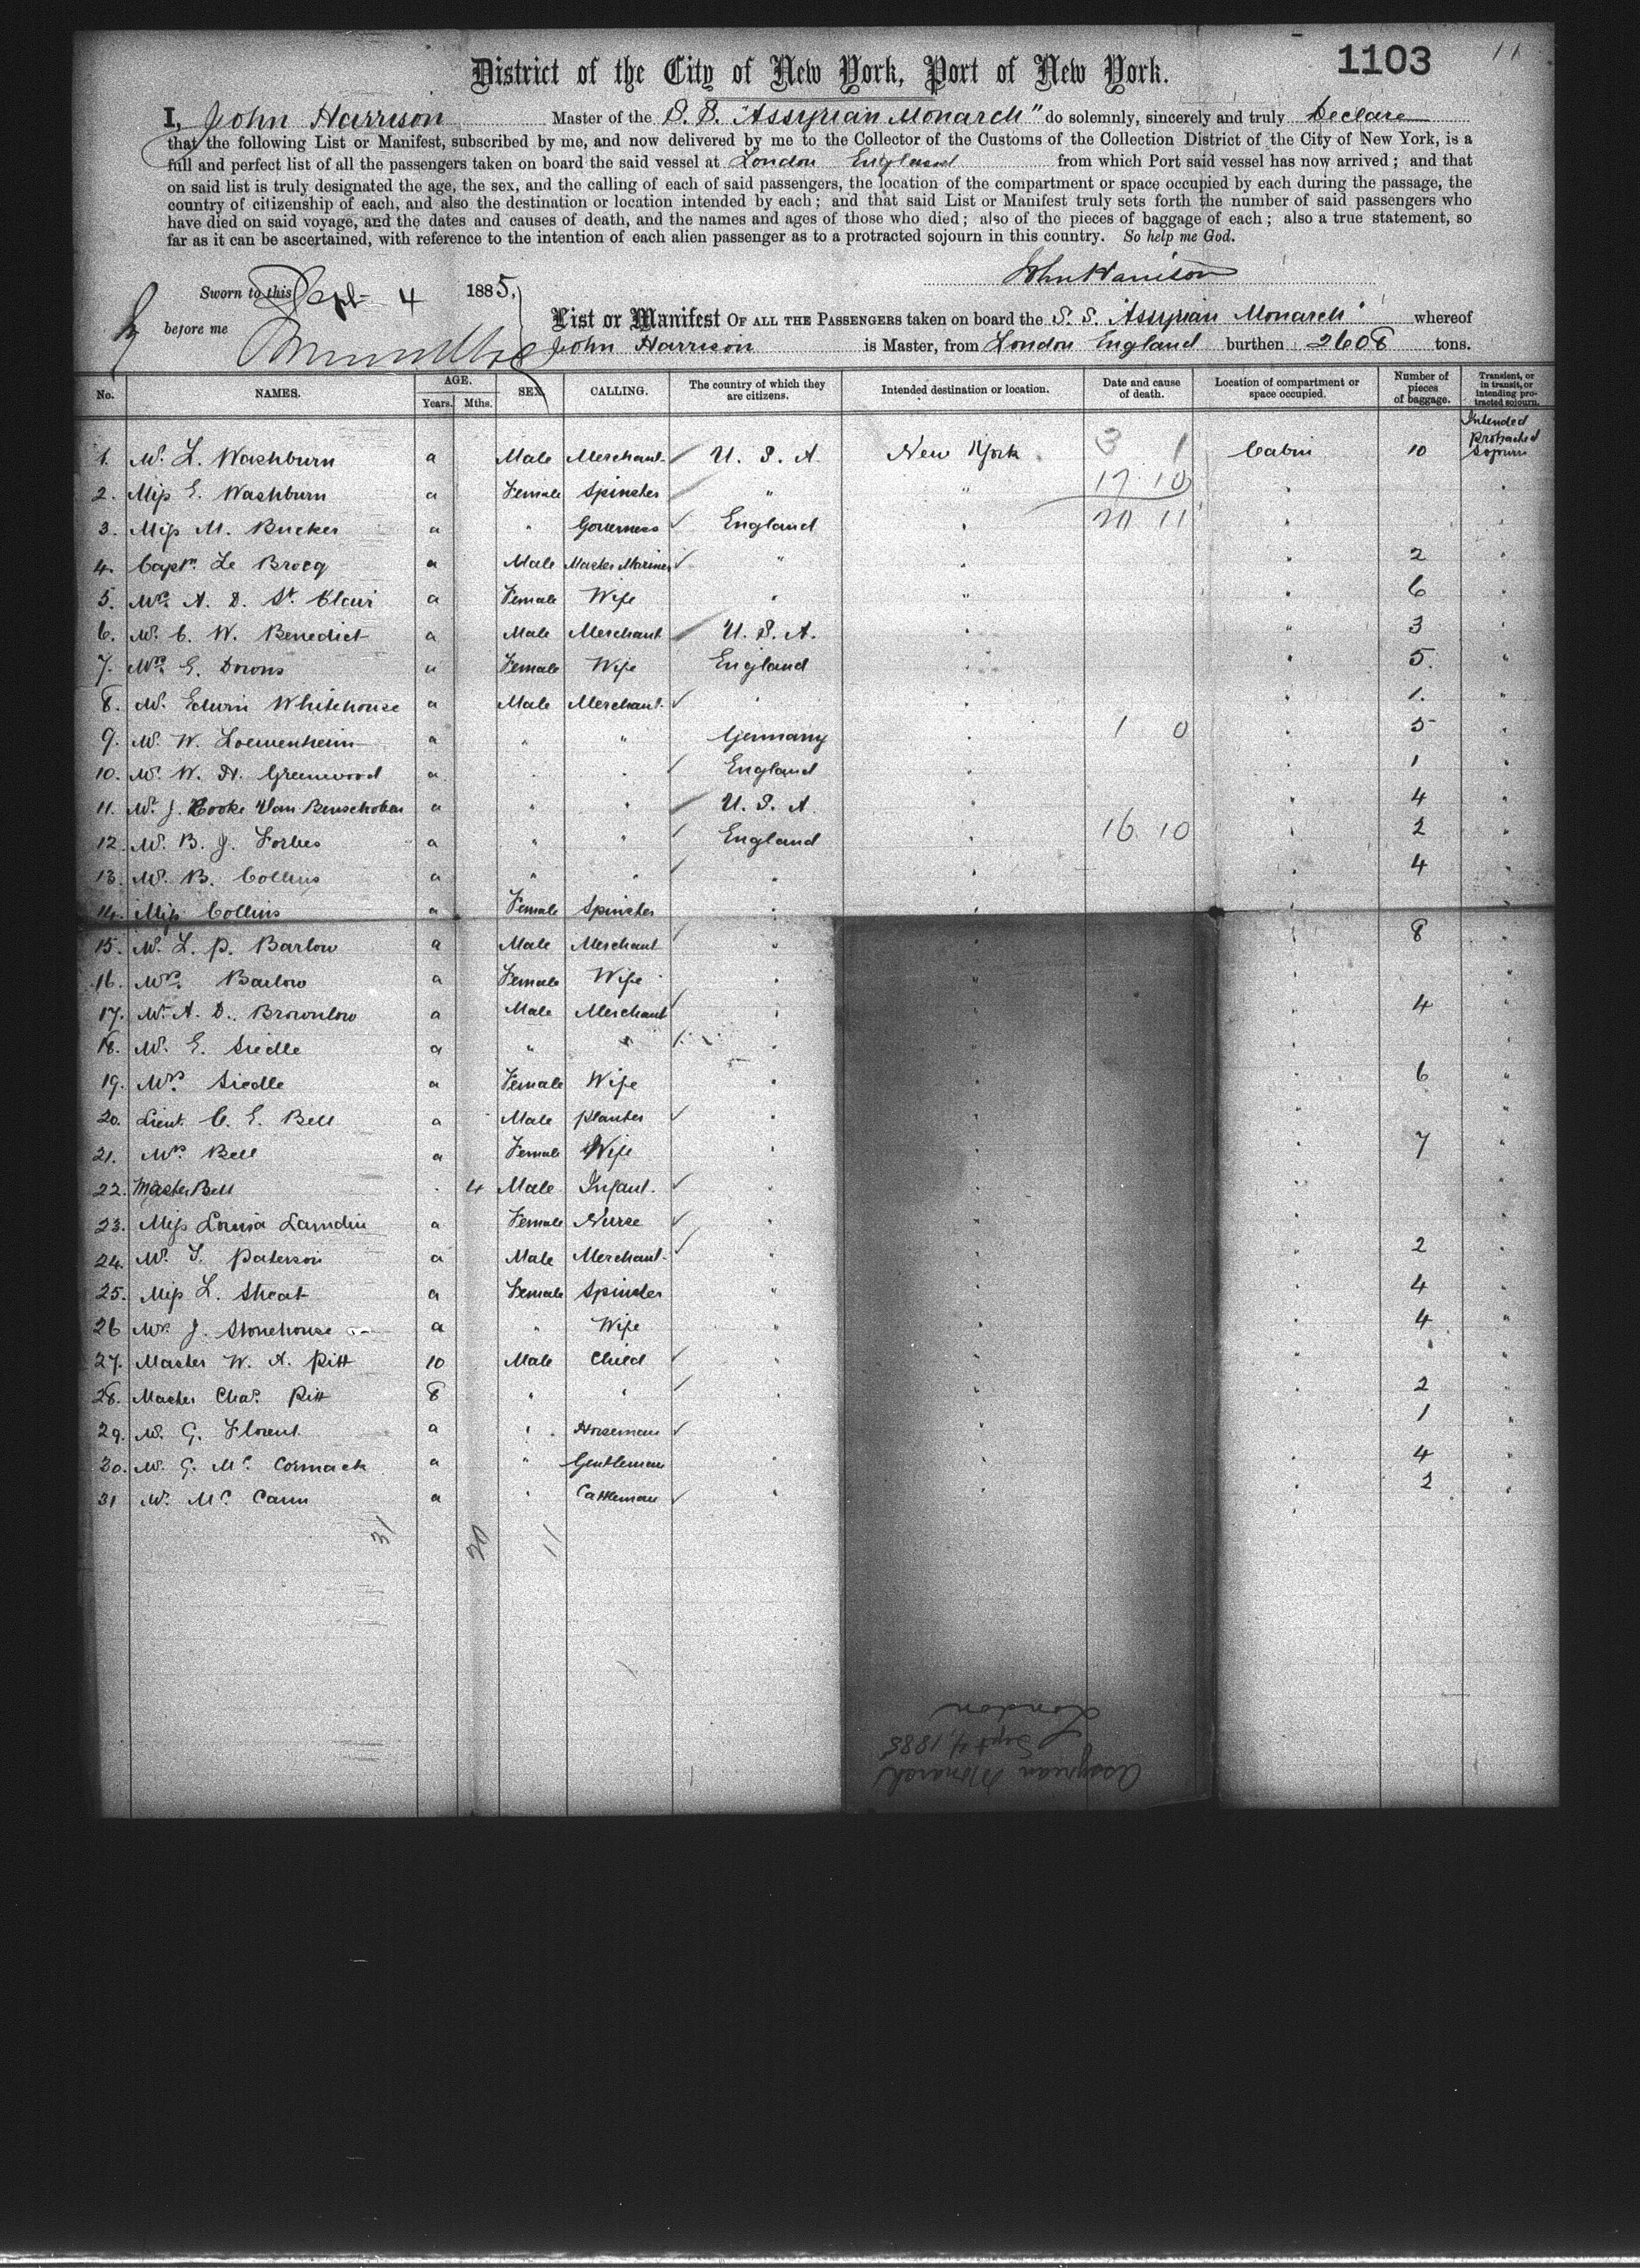 1103
11
District of the City of New York, Port of New York.
I, John Harrison Master of the S. S. "Assyrian Monarch" do solemnly, sincerely and truly Declare
that the following List or Manifest, subscribed by me, and now delivered by me to the Collector of the Customs of the Collection District of the City of New York, is a
full and perfect list of all the passengers taken on board the said vessel at London England from which Port said vessel has now arrived; and that
on said list is truly designated the age, the sex, and the calling of each of said passengers, the location of the compartment or space occupied by each during the passage, the
country of citizenship of each, and also the destination or location intended by each; and that said List or Manifest truly sets forth the number of said passengers who
have died on said voyage, and the dates and causes of death, and the names and ages of those who died; also of the pieces of baggage of each; also a true statement, so
far as it can be ascertained, with reference to the intention of each alien passenger as to a protracted sojourn in this country. So help me God.
John Harrison
Sworn to this Sept 4 1885,
before me
List or Manifest OF ALL THE PASSENGERS taken on board the S. S. "Assyrian Monarch" whereof
John Harrison is Master, from London England burthen 2608 tons.
No. NAMES. AGE. Years. Mths. SEX. CALLING. The country of which they are citizens. Intended destination or location. Date and cause of death. Location of compartment or space occupied. Number of pieces of baggage. Transient, or in transit, or intending protracted sojourn.
Intended Protracted Sojourn
1. Mr. L. Washburn a Male Merchant U. S. A New York 3 1 Cabin 10
2. Miss E. Washburn a Female Spinster " " 17 10 "
3. Miss M. Bucker a " Governess England " 20 11 "
4. Captn. Le Brocq a Male Master Mariner " " " 2 "
5. Mrs. A. D. St. Clair a Female Wife " " " 6 "
6. Mr. C. W. Benedict a Male Merchant U. S. A. " " 3 "
7. Mrs. E. Downs a Female Wife England " " 5. "
8. Mr. Edwin Whitehouse a Male Merchant " " " 1. "
9. Mr. W. Loewenheim a " " Germany " 1 0 " 5 "
10. Mr. W. H. Greenwood a " " England " " 1 "
11. Mr. J. Hooke Van Benschoten a " " U. S. A " " 4 "
12. Mr. B. J. Forbes a " " England " 16 10 " 2 "
13. Mr. B. Collins a " " " " " 4 "
14. Miss Collins a Female Spinster " " " "
15. Mr. L. P. Barlow a Male Merchant " " " 8 "
16. Mrs. Barlow a Female Wife " " " "
17. Mr. A. D. Brownlow a Male Merchant " " " 4 "
18. Mr. E. Siedle a " " " " " "
19. Mrs. Siedle a Female Wife " " " 6 "
20. Lieut. C. E. Bell a Male Planter " " " "
21. Mrs. Bell a Female Wife " " " 7 "
22. Master Bell 4 Male Infant. " " " "
23. Miss Louisa Lamdin a Female Nurse " " " "
24. Mr. T. Paterson a Male Merchant " " " 2 "
25. Miss L. Sheat a Female Spinster " " " 4 "
26 Mrs. J. Stonehouse a " Wife " " " 4 "
27. Master W. A. Pitt 10 Male Child " " " "
28. Master Chas. Pitt 8 " " " " " 2 "
29. Mr. G. Florent a " Horseman " " 1 "
30. Mr. G. Mc. Cormack a " Gentleman " " " 4 "
31 Mr. Mc. Cann a " Cattleman " " " 2 "
31 20 11
London
Sept 4, 1885
Assyrian Monarch